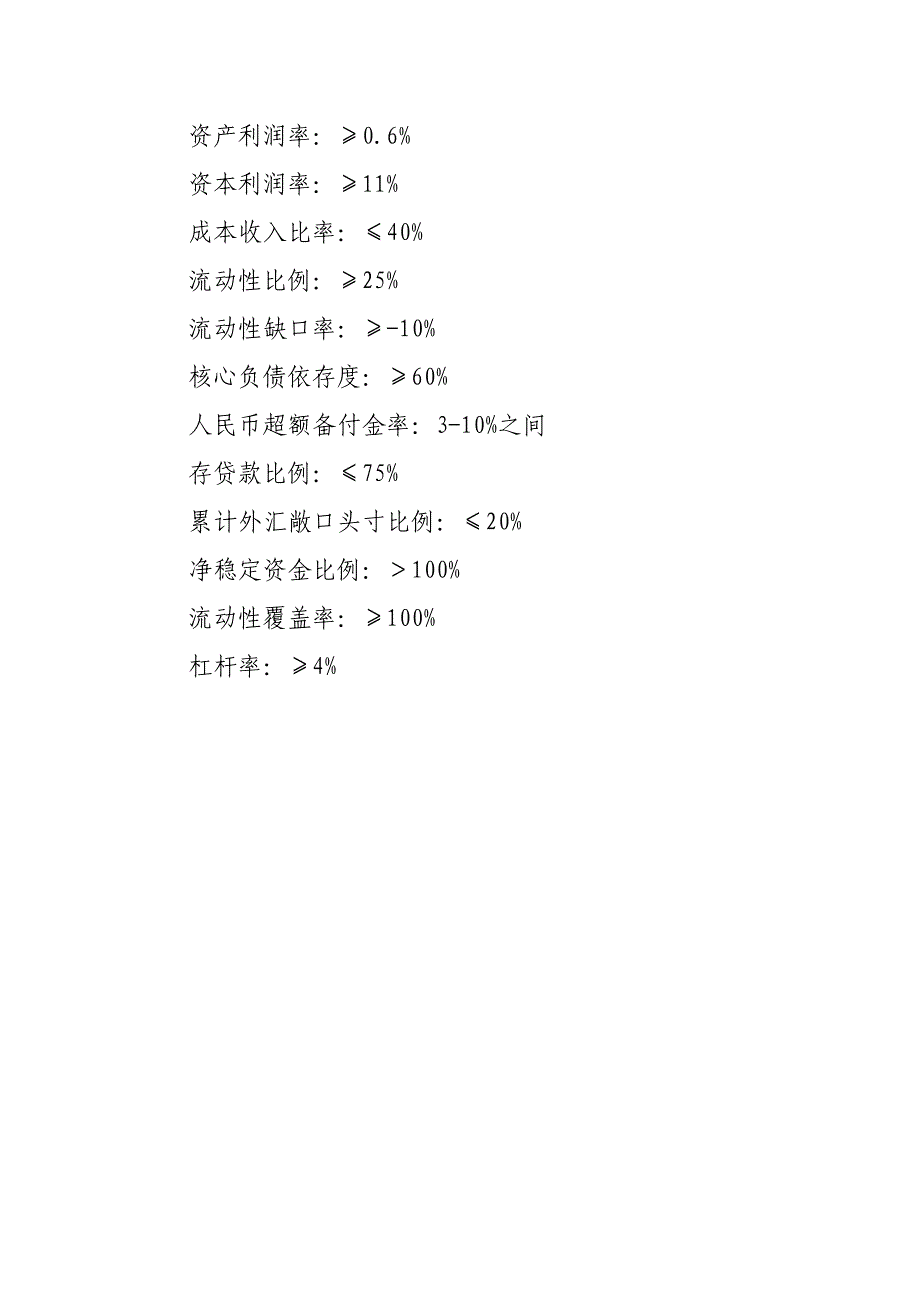 资产利润率：≥0.6%
资本利润率：≥11%
成本收入比率：≤40%
流动性比例：≥25%
流动性缺口率：≥-10%
核心负债依存度：≥60%
人民币超额备付金率：3-10%之间
存贷款比例：≤75%
累计外汇敞口头寸比例：≤20%
净稳定资金比例：>100%
流动性覆盖率：≥100%
杠杆率：≥4%